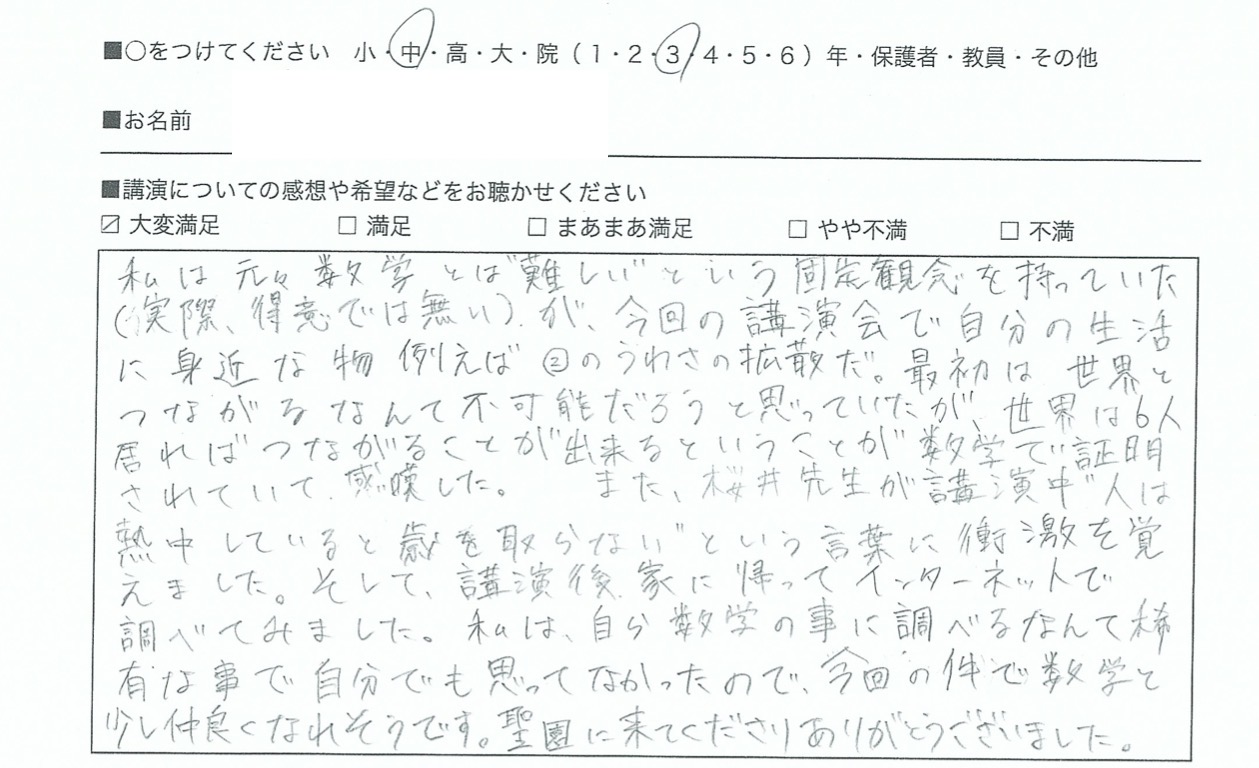 ■○をつけてください 小・中・高・大・院（1・2・3・4・5・6）年・保護者・教員・その他
■お名前
■講演についての感想や希望などをお聴かせください
☑ 大変満足 □ 満足 □ まあまあ満足 □ やや不満 □ 不満
私は元々数学とは"難しい"という固定観念を持っていた
(実際、得意では無い)が、今回の講演会で自分の生活
に身近な物 例えば ②のうわさの拡散だ。最初は 世界と
つながるなんて不可能だろうと思っていたが、世界は6人
居ればつながることが出来るということが数学で証明
されていて、感嘆した。 また、桜井先生が講演中"人は
熱中していると歳を取らない"という言葉に衝激を覚
えました。そして、講演後、家に帰ってインターネットで
調べてみました。私は、自ら数学の事に調べるなんて稀
有な事で自分でも思ってなかったので、今回の件で数学と
少し仲良くなれそうです。聖園に来てくださりありがとうございました。